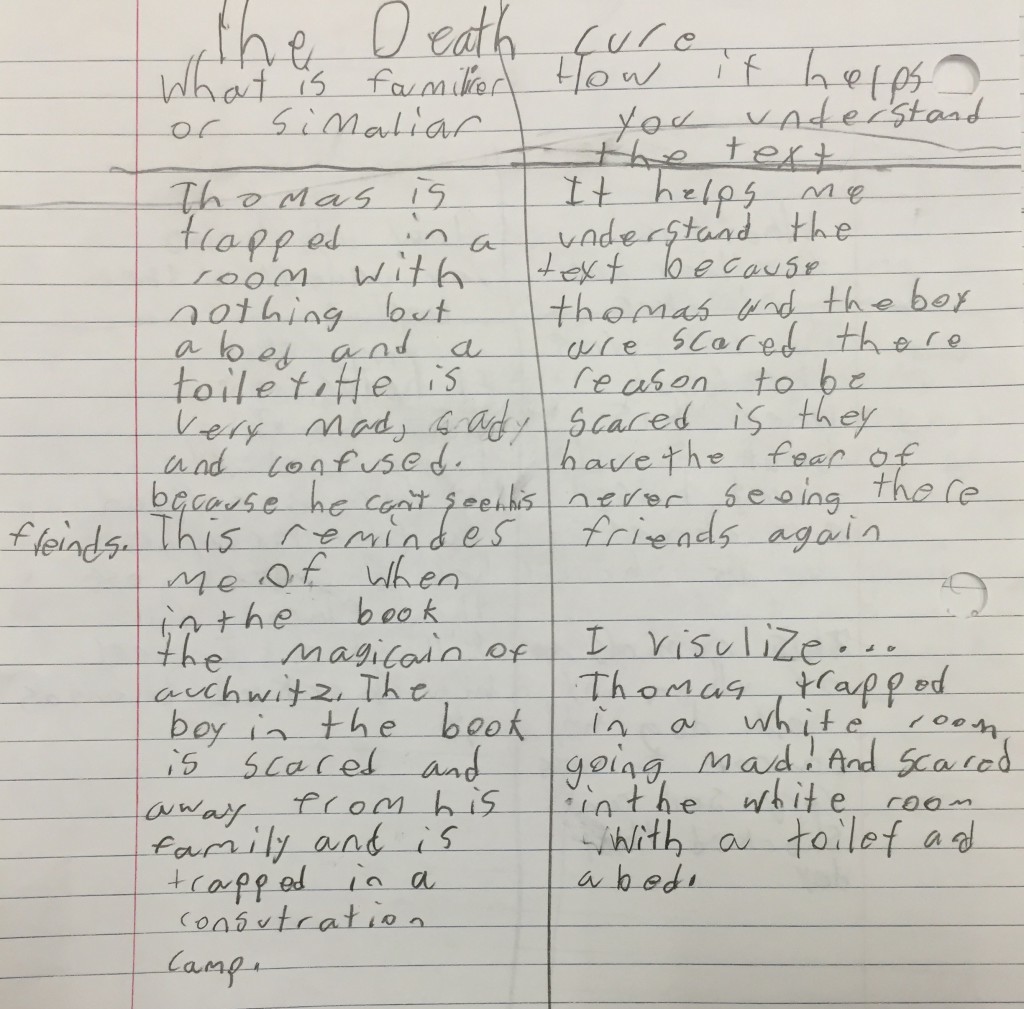 The Death cure
What is familier
or Simaliar
Thomas is
trapped in a
room with
nothing but
a bed and a
toilet. He is
very mad,
and confused.
because he can't see his
freinds. This remindes
me of when
in the book
the magicain of
auchwitz. The
boy in the book
is scared and
away from his
family and is
trapped in a
consutration
camp.
How it helps
you understand
the text
It helps me
understand the
text because
thomas and the boy
are scared there
reason to be
scared is they
have the fear of
never seeing there
friends again
I visulize....
Thomas trapped
in a white room
going mad! And scared
in the white room
with a toilet ad
a bed.